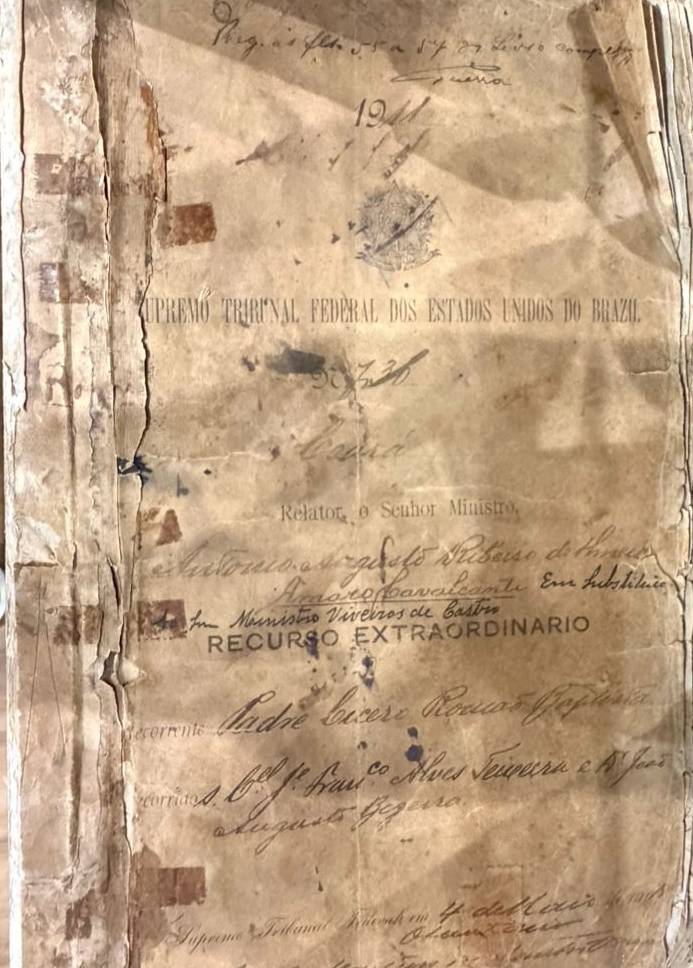 Reg. às fls. 55 a 57 do Livro competente
Guerra
1911
SUPREMO TRIBUNAL FEDERAL DOS ESTADOS UNIDOS DO BRAZIL
Nº 730
Ceará
Relator, o Senhor Ministro,
Antonio Augusto Ribeiro de
Amaro Cavalcante Em Substituição
ao Snr Ministro Viveiros de Castro
RECURSO EXTRAORDINARIO
Recorrente Padre Cicero Romão Baptista
Recorridos. Cel Je Franco Alves Teixeira e Dr João
Augusto Bezerra
Supremo Tribunal Federal, em 4 de Maio de